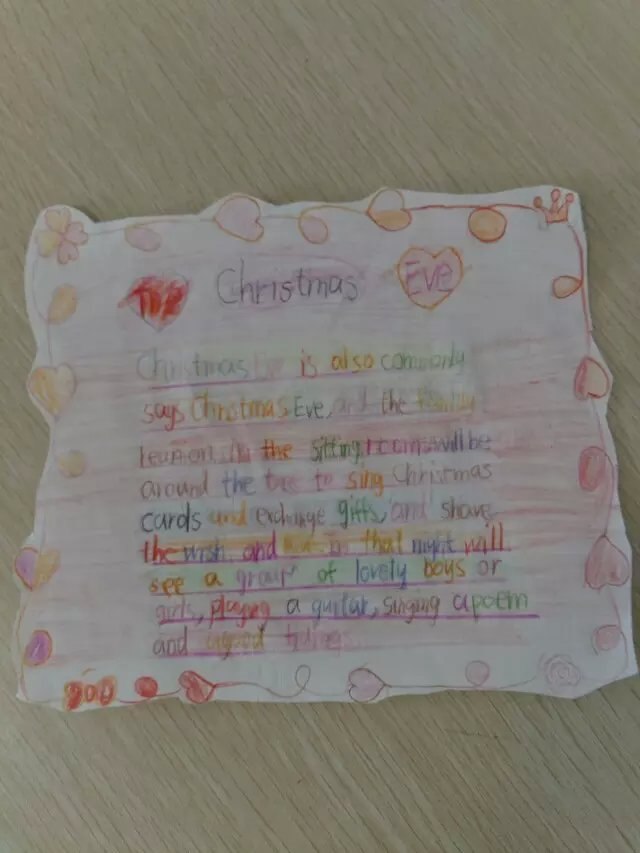 The Christmas Eve
Christmas Eve is also commonly
says Christmas Eve, and the family
reunion. In the sitting rooms will be
around the tree to sing Christmas
cards and exchange gifts, and share
the wish and in that night will
see a group of lovely boys or
girls, playing a guitar, singing a poem
and a good